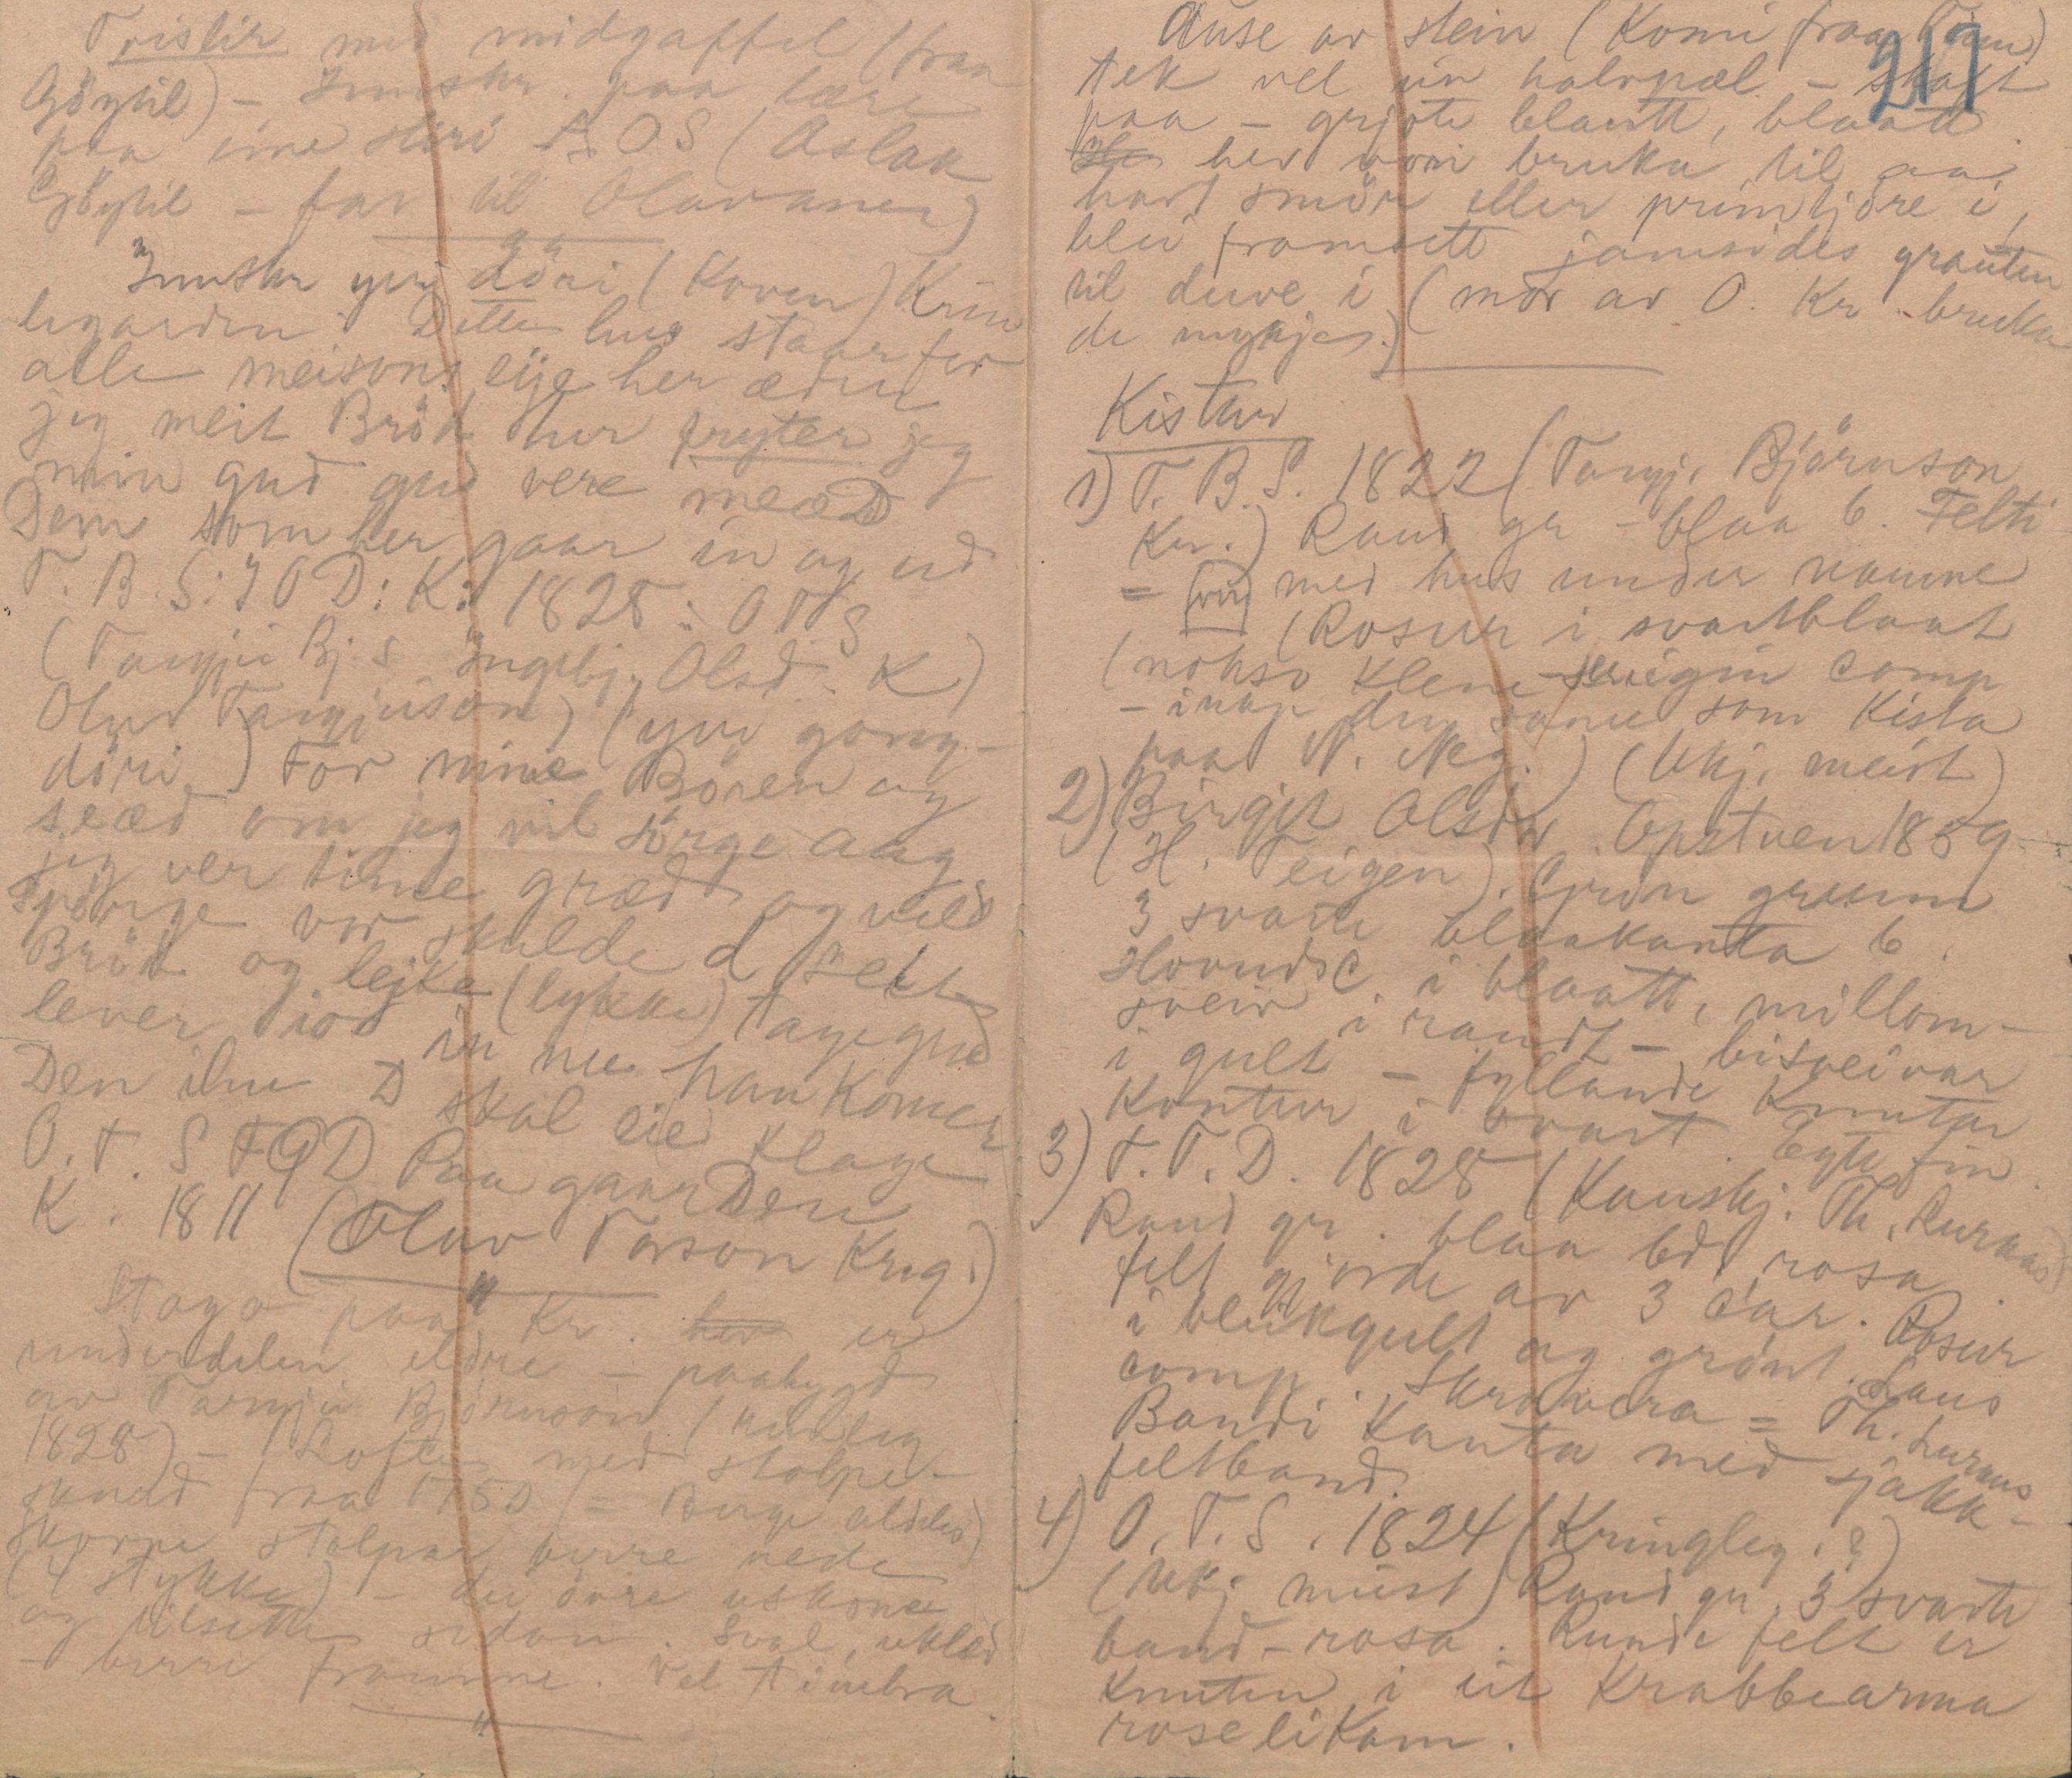 Trislir med midgaffel (fraa
Göytil) – Innskr. paa lære
paa eine sliri AOS (Aslak
Göytil – far til Olavanes)
Innskr yvi döri (Koven) Krin
legarden. Dette hus staar for
alle meisons eije her æder
jeg meit Bröd her fryter jeg
min gud gud vere meæD
Dem som her gaar in og ud
T. B. S: I O D: K: 1828: O T S
(Targjei Bj. s Ingebj. Olsd. K)
Olav Targjeison) (yvi gong-
döri) For mine Bören ag
seæd om jeg vil sörge aag
jeg ver time græd og vild
spörge vor skulde d selt
Bröd og lejke (lykke) tage gud
lever iod in nu han Komer
Den ilne D skal eie Klage
O. T. S T G D Paa gaarDen
K. 1811 (Olav Torson Krig.)
Stogo paa Kr. her er
underdelen eldre – paabygd
av Targjei Björnson (
1828) – Loftet med stolpe-
skuad fraa 1750 (= Berge aldeles)
Skorpe stolpar berre nede
(4 stykke) – dei övre uskorne
og tilsette sidan. Sval, uklæd
– berre framme. Vel timbra.

Ause av stein (Komi fraa
217
tek vel ein halvpæl – skaft
paa – grjote blautt, blaatt.
He her vori bruka til aa
havt smör eller primtjöre i,
blei framsett jamsides grauten
til duve i (mor av O. Kr. bruka
de mykjes.)
Kistur
1) T. B. S. 1822 (Targj. Björnson
Kr.) Raud gr – blaa b. Felti
= med hus under namne
(Rosur i svartblaat
(nokso Klene – eigin comp
– inkje den same som Kista
paa N. Neg.) (Ukj. meist)
2) Birgjit Olsdr. Opstuen 1859.
(H. Teigen). Grön grunn
3 svarte blaakanta b.
Hovuds C i blaatt, millom-
sveiv i raudt – bisveivar
i gult – fyllande Knutar
Kontur i svart. Egte fin.
3) T. T. D. 1828 (Kanskj. Th. Luraas)
Raud gr. blaa bd. rosa.
felt gjorde av 3 C'ar. Rosur
i bleikgult og grönt. Laus
comp. Skravera = Th. Luraas
Bandi Kanta med sjakk-
feltband.
4) O. T. S. 1824 (Kringleg. ?)
(Ukj meist) Raud gr. 3 svarte
band – rosa. Runde felt er
Knuten i eit Krabbearma
roselikam.